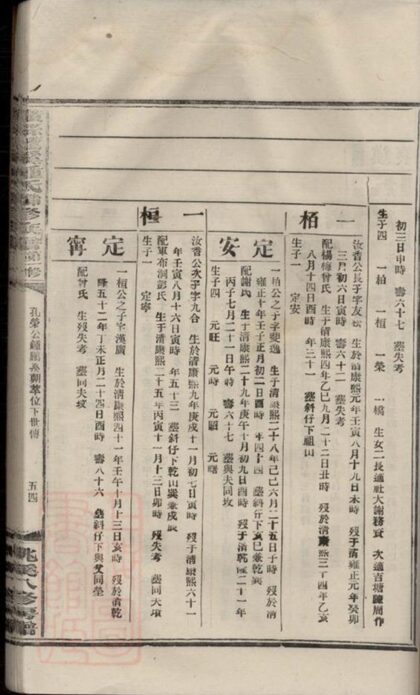 初三日申時 壽六十七 塟失考
生子四 一柏 一桓 一榮 一橋 生女二長適社大謝務實 次適百塘陳周作
一柏
汝香公長子字友松 生於清康熙元年壬寅八月十九日未時 歿于清雍正元年癸卯
三月初六日寅時 壽六十二 塟失考
配楊梅曾氏 生于清康熙四年乙巳九月二十二日丑時 歿於清康熙三十四年乙亥
八月十四日酉時 年三十一 塟斜仔下祖山
生子一 定安
定安
一柏公之子字斐逸 生于清康熙二十八年己巳六月二十五日子時 歿于清
雍正十年壬子正月初二日酉時 年四十四 塟斜仔下亥巳兼乾巽
配謝氏 生于清康熙二十九年庚午十月初九日酉時 歿于清乾隆二十一年
丙子七月二十一日午時 壽六十七 塟與夫同坟
生子四 元旺 元時 元顯 元曙
一桓
汝香公次子字九合 生於清康熙九年庚戌十一月初七日寅時 歿于清康熙六十一
年壬寅八月十六日寅時 年五十三 塟斜仔下乾山巽兼戌辰
配軍布洞彭氏 生于清康熙二十五年丙寅十一月十三日卯時 歿失考 塟同夫墳
生子一 定寧
定寗
一桓公之子字漢廣 生於清康熙四十一年壬午十月十三日亥時 歿於清乾
隆五十二年丁未正月二十四日酉時 壽八十六 塟斜仔下與父同塋
配曾氏 生歿失考 塟同夫坟
孔榮公鍾鵬吳朝萃位下世情
五四
八修房譜